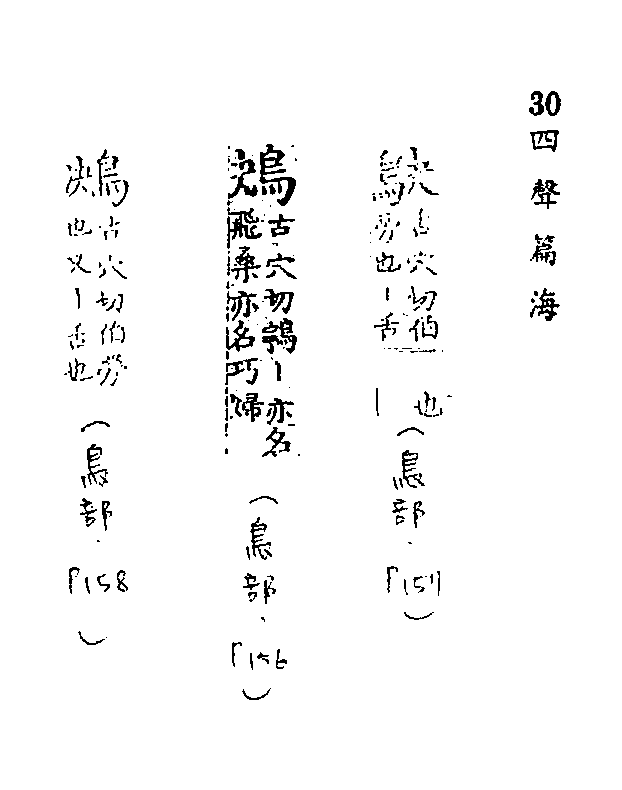 30四聲篇海
古穴切伯
勞也丨舌
也
丨
(鳥部.P157)
鴃古穴切鶚丨亦名
飛桑亦名巧婦
(鳥部.P156)
鴃古穴切伯勞
也又丨舌也
(鳥部.P158)